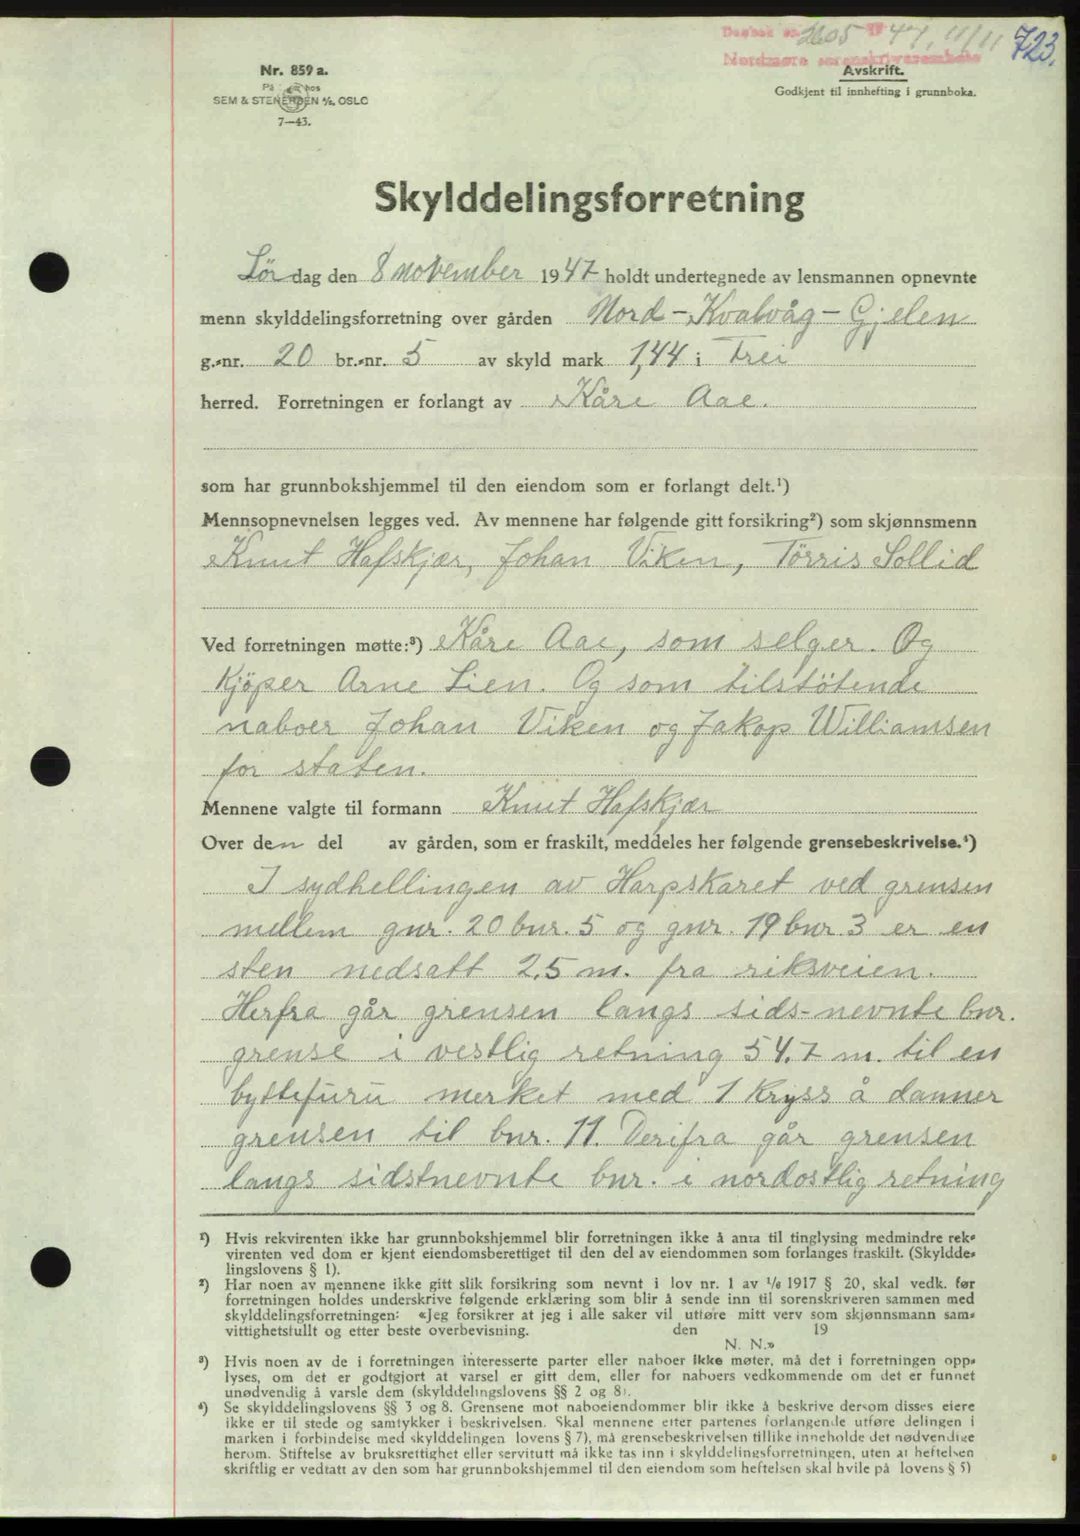 Dagbok nr. 2605 19 47, 11/11 723.
Nordmøre sorenskriverembete
Nr. 859 a.
På hos
SEM & STENERSEN A/S, OSLO
7—43.
Avskrift.
Godkjent til innhefting i grunnboka.
Skylddelingsforretning
Lørdag den 8 november 1947 holdt undertegnede av lensmannen opnevnte
menn skylddelingsforretning over gården Nord-Kvalvåg-Gjelen
g.-nr. 20 br.-nr. 5 av skyld mark 1,44 i Frei
herred. Forretningen er forlangt av Kåre Aae.
som har grunnbokshjemmel til den eiendom som er forlangt delt.¹)
Mennsopnevnelsen legges ved. Av mennene har følgende gitt forsikring²) som skjønnsmenn
Knut Hafskjær, Johan Viken, Tørris Sollid
Ved forretningen møtte:³) Kåre Aae, som selger. Og
Kjöper Arne Lien. Og som tilstötende
naboer Johan Viken og Jakop Williamsen
for staten.
Mennene valgte til formann Knut Hafskjær
Over den del av gården, som er fraskilt, meddeles her følgende grensebeskrivelse.⁴)
I sydhellingen av Harpskaret ved grensen
mellem gnr. 20 bnr. 5 og gnr. 19 bnr. 3 er en
sten nedsatt 2,5 m. fra riksveien.
Herfra går grensen langs sids-nevnte bnr.
grense i vestlig retning 54,7 m. til en
byttefuru merket med 1 kryss å danner
grensen til bnr. 11. Derifra går grensen
langs sidstnevnte bnr. i nordostlig retning
¹) Hvis rekvirenten ikke har grunnbokshjemmel blir forretningen ikke å anta til tinglysing medmindre rek-
virenten ved dom er kjent eiendomsberettiget til den del av eiendommen som forlanges fraskilt. (Skyldde-
lingslovens § 1).
²) Har noen av mennene ikke gitt slik forsikring som nevnt i lov nr. 1 av ¹/₆ 1917 § 20, skal vedk. før
forretningen holdes underskrive følgende erklæring som blir å sende inn til sorenskriveren sammen med
skylddelingsforretningen: «Jeg forsikrer at jeg i alle saker vil utføre mitt verv som skjønnsmann sam-
vittighetsfullt og etter beste overbevisning. den 19
N. N.»
³) Hvis noen av de i forretningen interesserte parter eller naboer ikke møter, må det i forretningen opp-
lyses, om det er godtgjort at varsel er gitt dem, eller for naboers vedkommende om det er funnet
unødvendig å varsle dem (skylddelingslovens §§ 2 og 8).
⁴) Se skylddelingslovens §§ 3 og 8. Grensene mot naboeiendommer blir ikke å beskrive dersom disses eiere
ikke er til stede og samtykker i beskrivelsen. Skal mennene etter partenes forlangende utføre delingen i
marken i forbindelse med skylddelingen lovens § 7), må grensebeskrivelsen tillike inneholde det nødvendige
herom. Stiftelse av bruksrettighet eller servitutt må ikke tas inn i skylddelingsforretningen, uten at heftelsen
skriftlig er vedtatt av den som har grunnbokshjemmel til den eiendom som heftelsen skal hvile på lovens § 5)